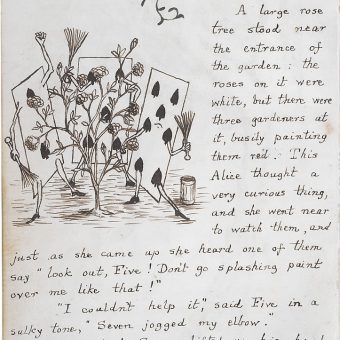 A large rose
tree stood near
the entrance of
the garden: the
roses on it were
white, but there were
three gardeners at
it, busily painting
them red. This
Alice thought a
very curious thing,
and she went near
to watch them, and
just as she came up she heard one of them
say "look out, Five! Don't go splashing paint
over me like that!"
"I couldn't help it", said Five in a
sulky tone, "Seven jogged my elbow."